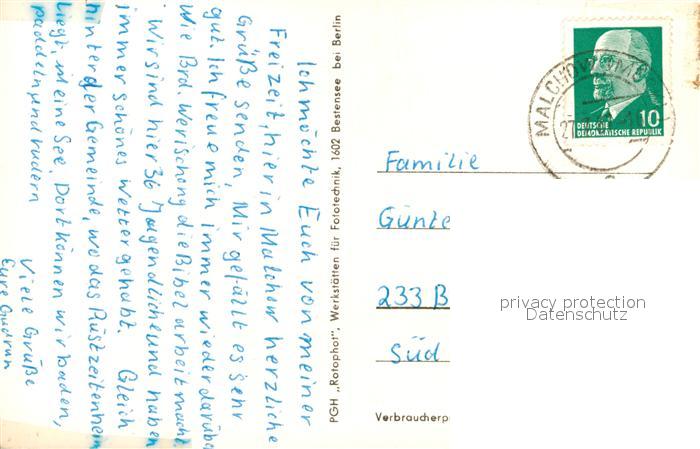 Ich möchte Euch von meiner
Freizeit, hier in Malchow herzliche
Grüße senden. Mir gefällt es sehr
gut. Ich freue mich immer wieder darüber
wie Brd. Werischong die Bibelarbeit macht.
Wir sind hier 36 Jugendliche und haben
immer schönes Wetter gehabt. Gleich
hinter der Gemeinde, wo das Rüstzeitenheim
liegt, ist eine See. Dort können wir baden,
paddeln, und rudern
Viele Grüße
Eure Gudrun
PGH „Rotophot", Werkstätten für Fototechnik, 1602 Bestensee bei Berlin
MALCHOW
27
10
DEUTSCHE
DEMOKRATISCHE REPUBLIK
Familie
Günte
233 B
Süd
privacy protection
Datenschutz
Verbraucherp